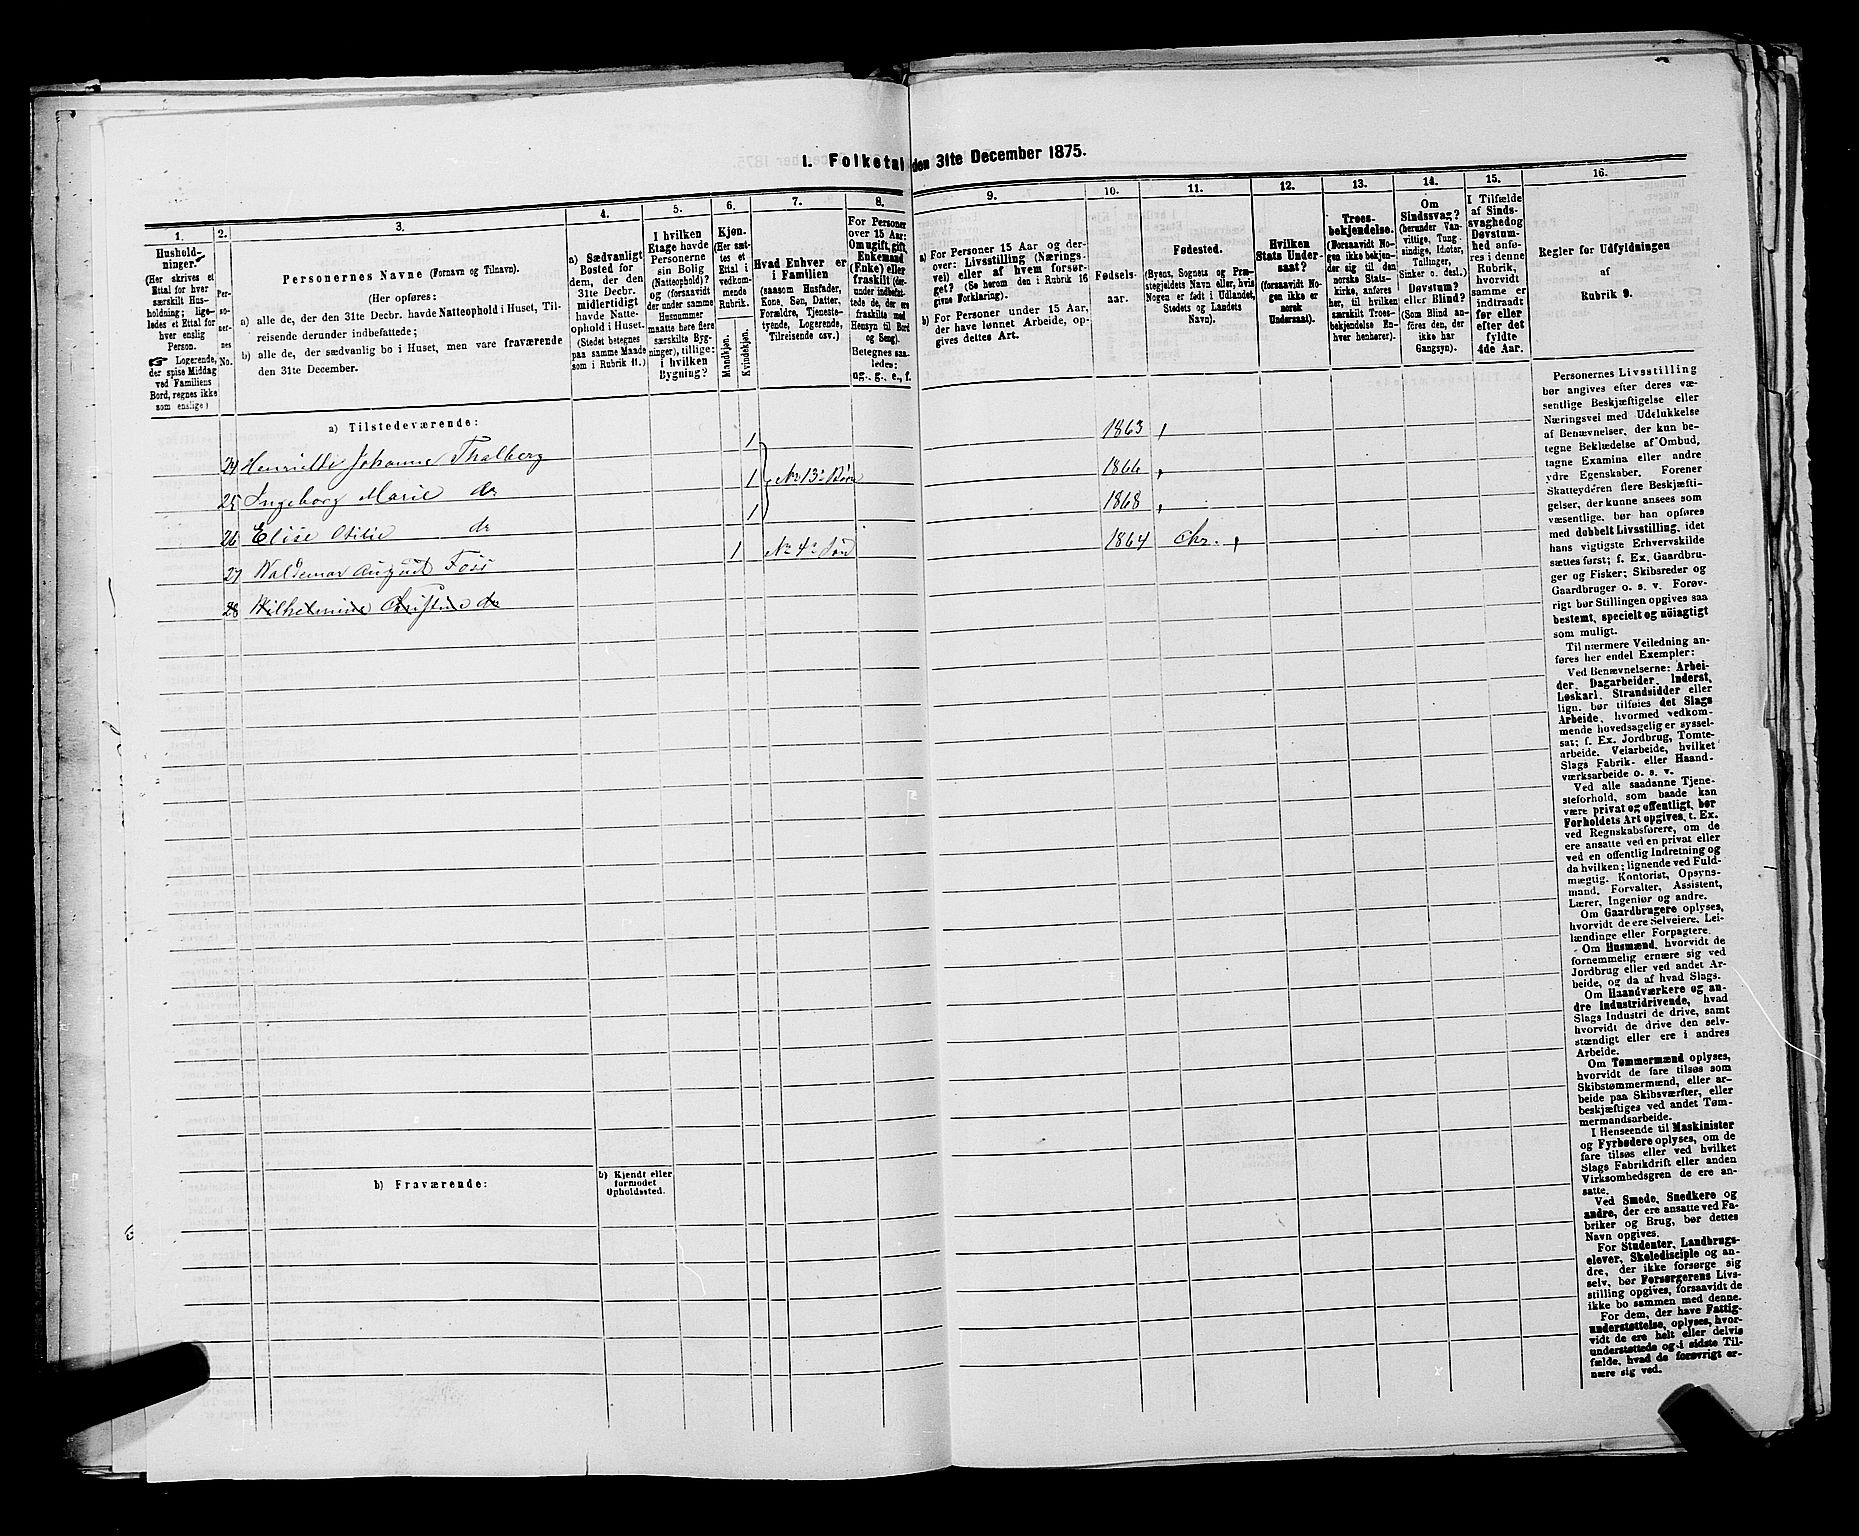 I. Folketal den 31te December 1875.
1.
Hushold-
ninger.
(Her skrives et
Ettal for hver
særskilt Hus-
holdning; lige-
ledes et Ettal for
hver enslig
Person.
☞ Logerende,
der spise Middag
ved Familiens
Bord, regnes ikke
som enslige.)
2.
Per-
so-
ner-
nes
No.
3.
Personernes Navne (Fornavn og Tilnavn).
(Her opføres:
a) alle de, der den 31te Decbr. havde Natteophold i Huset, Til-
reisende derunder indbefattede;
b) alle de, der sædvanlig bo i Huset, men vare fraværende
den 31te December.
4.
a) Sædvanligt
Bosted for
dem, der den
31te Decbr.
midlertidigt
havde Natte-
ophold i Huset.
(Stedet betegnes
paa samme Maade
som i Rubrik 11.)
5.
I hvilken
Etage havde
Personerne
sin Bolig
(Natteophold)?
og (forsaavidt
der under samme
Husnummer
maatte høre flere
særskilte Byg-
ninger), tillige:
i hvilken
Bygning?
6.
Kjøn.
(Her sæt-
tes et
Ettal i
vedkom-
mende
Rubrik.
Mandkjøn.
Kvindekjøn.
7.
Hvad Enhver er
i Familien
(saasom Husfader,
Kone, Søn, Datter,
Forældre, Tjeneste-
tyende, Logerende,
Tilreisende osv.)
8.
For Personer
over 15 Aar:
Om ugift, gift,
Enkemand
(Enke) eller
fraskilt (der-
under indbefat-
tede de, der ere
fraskilte med
Hensyn til Bord
og Seng).
Betegnes saa-
ledes:
ug., g., e., f.
9.
a) For Personer 15 Aar og der-
over: Livsstilling (Nærings-
vei) eller af hvem forsør-
get? (Se herom den i Rubrik 16
givne Forklaring).
b) For Personer under 15 Aar,
der have lønnet Arbeide, op-
gives dettes Art.
10.
Fødsels-
aar.
11.
Fødested.
(Byens, Sognets og Præ-
stegjeldets Navn eller, hvis
Nogen er født i Udlandet,
Stedets og Landets
Navn).
12.
Hvilken
Stats Under-
saat?
(forsaavidt No-
gen ikke er
norsk
Undersaat).
13.
Troes-
bekjendelse.
(Forsaavidt No-
gen ikke bekjen-
der sig til den
norske Stats-
kirke, anføres
her, til hvilken
særskilt Troes-
bekjendelse En-
hver henhører).
14.
Om
Sindssvag?
(herunder Van-
vittige, Tung-
sindige, Idioter,
Tallinger,
Sinker o. desl.)
Døvstum?
eller Blind?
(Som Blind an-
føres den, der
ikke har
Gangsyn).
15.
I Tilfælde
af Sinds-
svaghed og
Døvstum-
hed anfø-
res i denne
Rubrik,
hvorvidt
samme er
indtraadt
før eller
efter det
fyldte
4de Aar.
16.
Regler for Udfyldningen
af
Rubrik 9.
a) Tilstedeværende:
24 Henriette Johanne Thalberg 1 1863 ,
25 Ingeborg Marie do 1 No 13s Børn 1866 ,
26 Elise Otilie do 1 1868 ,
27 Waldemar August Foss 1 No 4s Søn 1864 Chr. ,
28 Wilhelmine Christine do
b) Fraværende:
b) Kjendt eller
formodet
Opholdssted.
Personernes Livsstilling
bør angives efter deres væ-
sentlige Beskjæftigelse eller
Næringsvei med Udelukkelse
af Benævnelser, der kun be-
tegne Beklædelse af Ombud,
tagne Examina eller andre
ydre Egenskaber. Forener
Skatteyderen flere Beskjæfti-
gelser, der kunne ansees som
væsentlige, bør han opføres
med dobbelt Livsstilling, idet
hans vigtigste Erhvervskilde
sættes først; f. Ex. Gaardbru-
ger og Fisker; Skibsreder og
Gaardbruger o. s. v. Forøv-
rigt bør Stillingen opgives saa
bestemt, specielt og nöiagtigt
som muligt.
Til nærmere Veiledning an-
føres her endel Exempler:
Ved Benævnelserne: Arbei-
der, Dagarbeider, Inderst,
Løskarl, Strandsidder eller
lign. bør tilføies det Slags
Arbeide, hvormed vedkom-
mende hovedsagelig er syssel-
sat; f. Ex. Jordbrug, Tomte-
arbeide, Veiarbeide, hvilket
Slags Fabrik- eller Haand-
værksarbeide o. s. v.
Ved alle saadanne Tjene-
steforhold, som baade kan
være privat og offentligt, bør
Forholdets Art opgives, t. Ex.
ved Regnskabsførere, om de
ere ansatte ved en privat eller
ved en offentlig Indretning og
da hvilken; lignende ved Fuld-
mægtig, Kontorist, Opsyns-
mand, Forvalter, Assistent,
Lærer, Ingeniør og andre.
Om Gaardbrugere oplyses,
hvorvidt de ere Selveiere, Lei-
lændinge eller Forpagtere.
Om Husmænd, hvorvidt de
fornemmelig ernære sig ved
Jordbrug eller ved andet Ar-
beide, og da af hvad Slags.
Om Haandværkere og an-
dre Industridrivende, hvad
Slags Industri de drive, samt
hvorvidt de drive den selv-
stændigt eller ere i andres
Arbeide.
Om Tømmermænd oplyses,
hvorvidt de fare tilsøs som
Skibstømmermænd, eller ar-
beide paa Skibsværfter, eller
beskjæftiges ved andet Tøm-
mermandsarbeide.
I Henseende til Maskinister
og Fyrbødere oplyses, om de
fare tilsøs eller ved hvilket
Slags Fabrikdrift eller anden
Virksomhedsgren de ere an-
satte.
Ved Smede, Snedkere og
andre, der ere ansatte ved Fa-
briker og Brug, bør dettes
Navn opgives.
For Studenter, Landbrugs-
elever, Skoledisciple og an-
dre, der ikke forsørge sig
selv, bør Forsørgerens Livs-
stilling opgives, forsaavidt de
ikke bo sammen med denne.
For dem, der have Fattig-
understøttelse, oplyses, hvor-
vidt de ere helt eller delvis
understøttede og i sidste Til-
fælde, hvad de forøvrigt er-
nære sig ved.